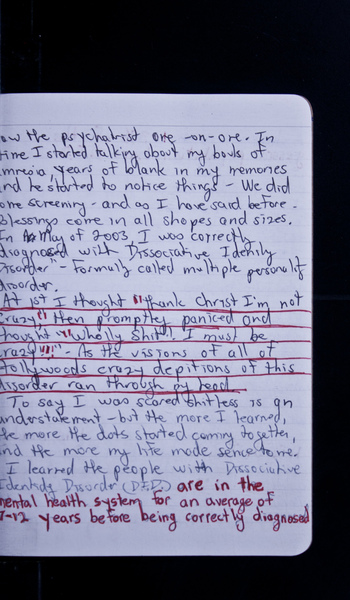 ow the psychatrist one -on-one. In
time I started talking about my bouls of
amnesia, years of blank in my memories
and he started to notice things - We did
one screening - and as I have said before -
Blessings come in all shapes and sizes.
In May of 2003, I was correctly
diagnosed with Dissociative Identity
Disorder - Formally called multiple personalit
disorder.
At 1st I thought "thank Christ I'm not
crazy", then promptley paniced and
thought "Wholly Shit! I must be
crazy!!!" - As the visions of all of
Hollywoods crazy depitions of this
disorder ran through my head.
To say I was scared shitless is an
understatement - but the more I learned,
the more the dots started coming together,
and the more my life made sence to me.
I learned the people with Dissociative
Identity Disorder (DID) are in the
mental health system for an average of
7-12 years before being correctly diagnosed